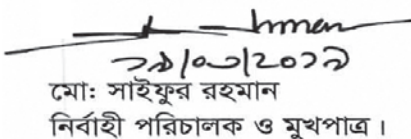 ১৯/০৩/২০১৯
মোঃ সাইফুর রহমান
নির্বাহী পরিচালক ও মুখপাত্র।